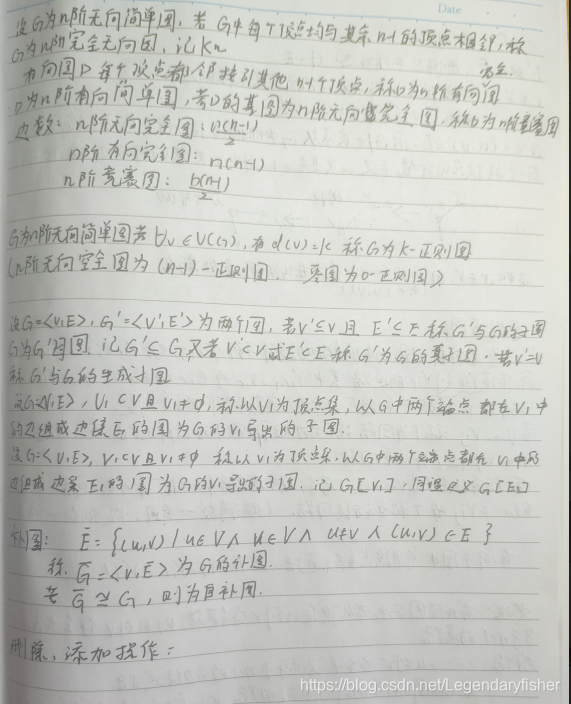 Date
设G为n阶无向简单图,若G中每个顶点均与其余n-1的顶点相邻,称
G为n阶完全无向图,记Kn
有向图D每个顶点都邻接到其他n-1个顶点,称D为n阶有向图
完全
D为n阶有向简单图,若D的基图为n阶无向完全图,称D为n阶竞赛图
边数:n阶无向完全图:n(n-1)/2
n阶有向完全图:n(n-1)
n阶竞赛图:n(n-1)/2
G为n阶无向简单图若∀v∈V(G),有d(v)=k 称G为k-正则图
(n阶无向完全图为(n-1)-正则图. 零图为0-正则图)
设G=<V,E>,G'=<V',E'>为两个图,若V'⊆V且E'⊆E称G'与G的子图
G为G'母图.记G'⊆G,又若V'⊂V或E'⊂E称G'为G的真子图.若V'=V
称G'与G的生成子图
设G=<V,E>,V₁⊂V且V₁≠∅,称以V₁为顶点集,以G中两个端点都在V₁中
的边组成边集E₁的图为G的V₁导出的子图.
设G=<V,E>,V₁⊂V且V₁≠∅ 称以V₁为顶点集,以G中两个端点都在V₁中的
边组成边集E₁的图为G的V₁导出的子图.记G[V₁],同理定义G[E₁]
补图:Ē={(u,v)|u∈V∧u∈V∧u≠v∧(u,v)∉E}
称.Ḡ=<V,Ē>为G的补图.
若Ḡ≅G,则为自补图.
删除,添加操作:
https://blog.csdn.net/Legendaryfisher